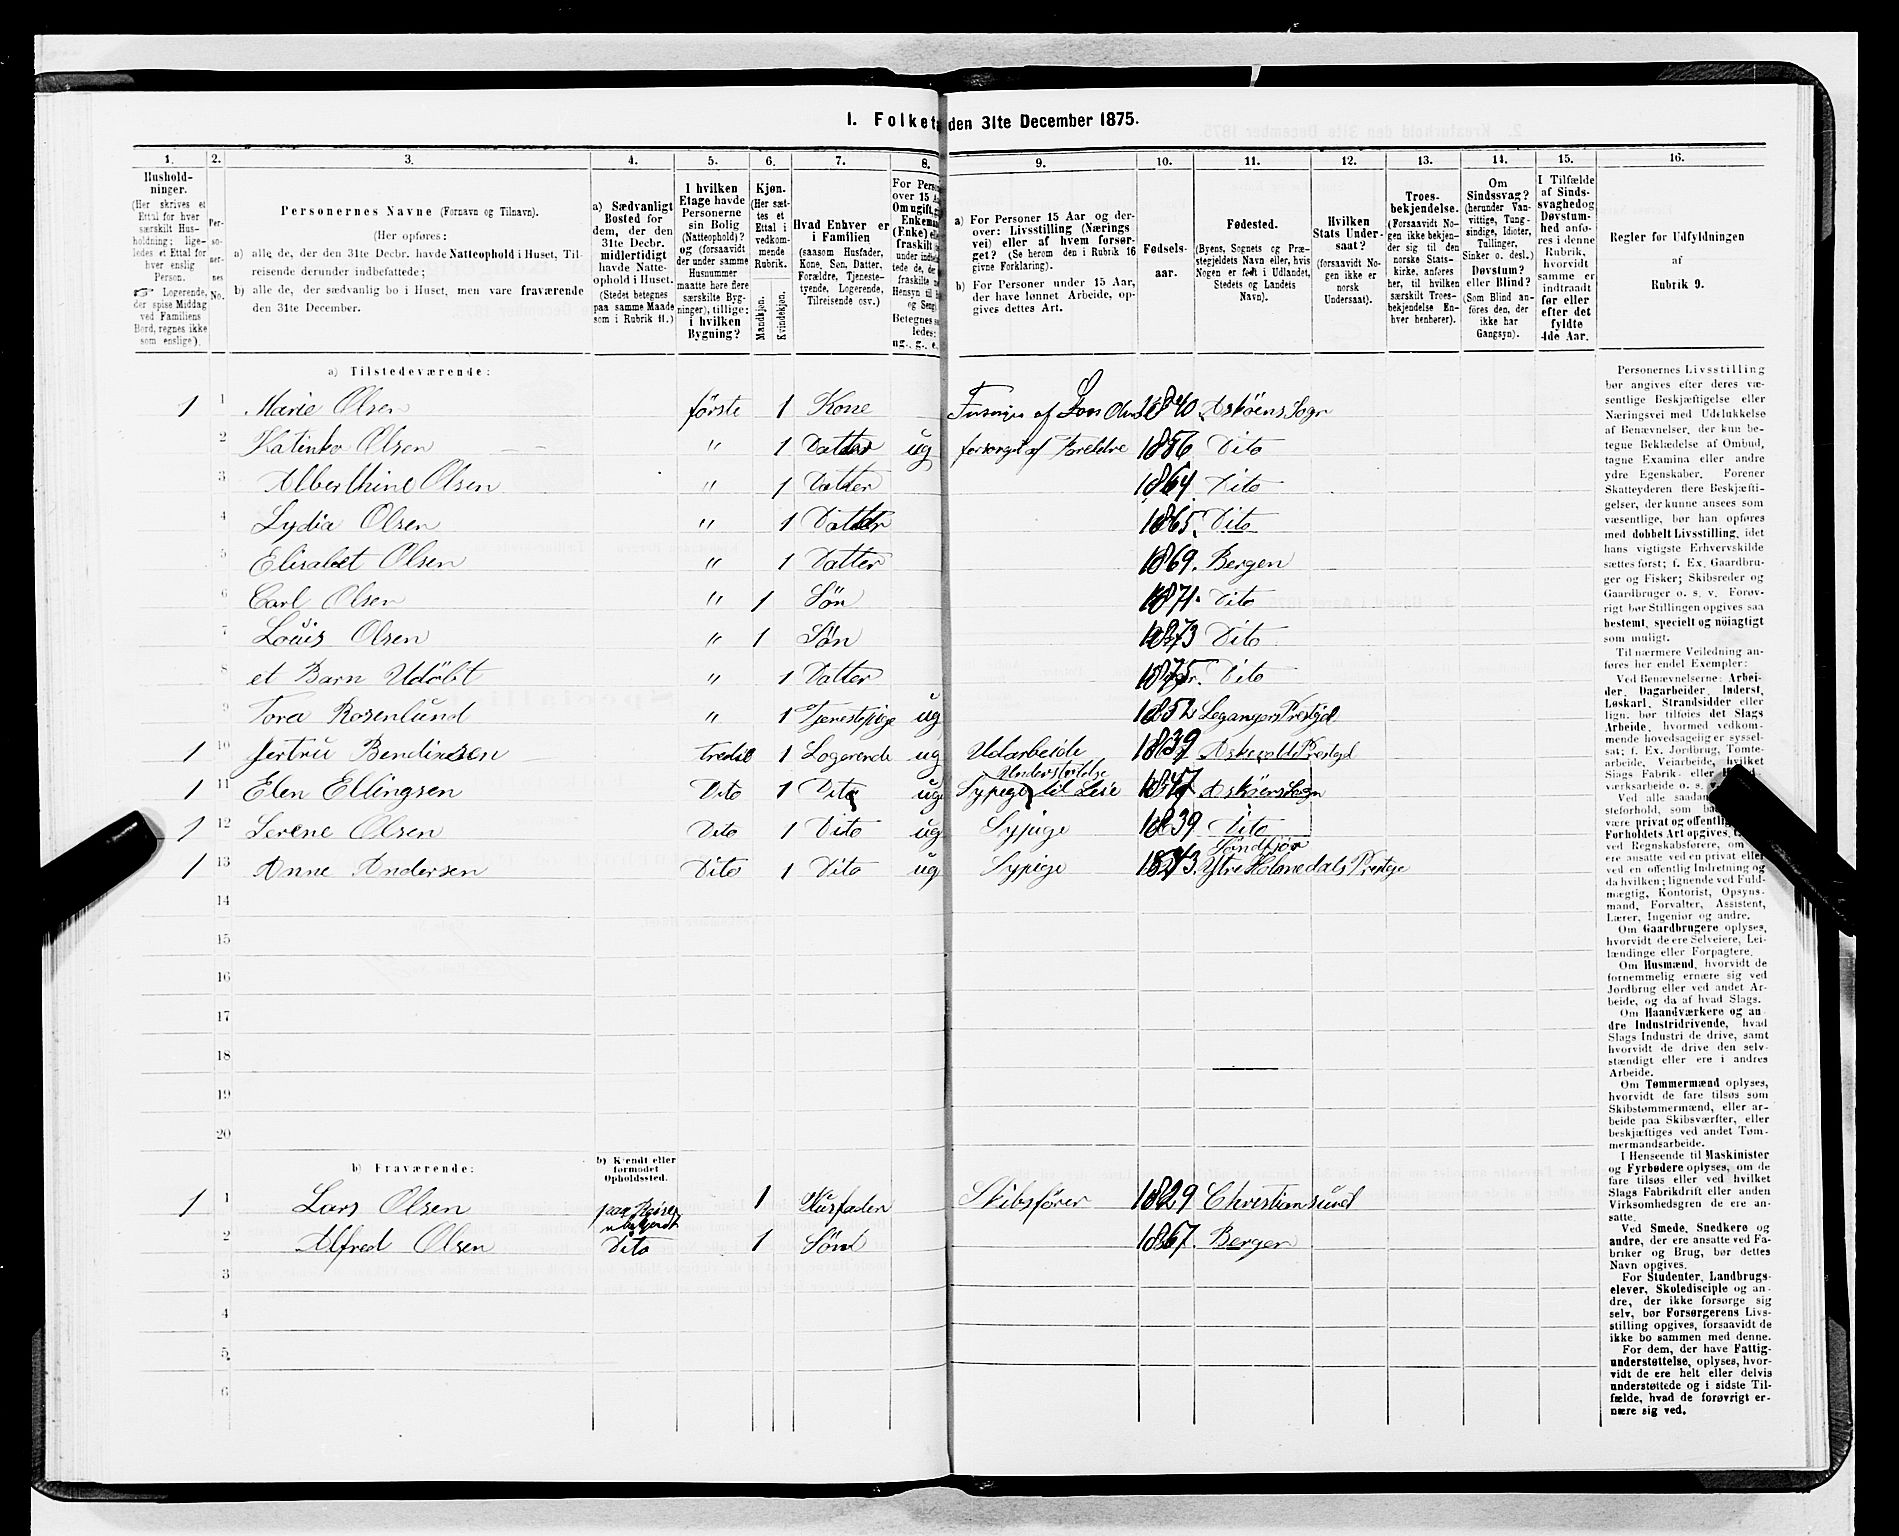 1. Folket den 31te December 1875.
1. 2. 3. 4. 5. 6. 7. 8. 9. 10. 11. 12. 13. 14. 15. 16.
Hushold-
ninger.
(Her skrives et
Ettal for hver
særskilt Hus-
holdning; lige-
ledes et Ettal for
hver enslig
Person.
☞ Logerende,
der spise Middag
ved Familiens
Bord, regnes ikke
som enslige).
Per-
so-
ner-
nes
No.
Personernes Navne (Fornavn og Tilnavn).
(Her opføres:
a) alle de, der den 31te Decbr. havde Natteophold i Huset, Til-
reisende derunder indbefattede;
b) alle de, der sædvanlig bo i Huset, men vare fraværende
den 31te December.
a) Sædvanligt
Bosted for
dem, der den
31te Decbr.
midlertidigt
havde Natte-
ophold i Huset.
(Stedet betegnes
paa samme Maade
som i Rubrik 11.)
I hvilken
Etage havde
Personerne
sin Bolig
(Natteophold)?
og (forsaavidt
der under samme
Husnummer
maatte høre flere
særskilte Byg-
ninger), tillige:
i hvilken
Bygning?
Kjøn.
(Her sæt-
tes et
Ettal i
vedkom-
mende
Rubrik.
Mandkjøn.
Kvindekjøn.
Hvad Enhver er
i Familien
(saasom Husfader,
Kone, Søn, Datter,
Forældre, Tjeneste-
tyende, Logerende,
Tilreisende osv.)
For Perso
over 15 A
Om ugift, g
Enkem
(Enke) el
fraskilt
under indbe
tede de, de
fraskilte
Hensyn til B
og Seng
Betegnes s
ledes:
ug., g., e.
a) For Personer 15 Aar og der-
over: Livsstilling (Nærings
vei) eller af hvem forsør-
get? (Se herom den i Rubrik 16
givne Forklaring).
b) For Personer under 15 Aar,
der have lønnet Arbeide, op-
gives dettes Art.
Fødsels-
aar.
Fødested.
(Byens, Sognets og Præ-
stegjeldets Navn eller, hvis
Nogen er født i Udlandet,
Stedets og Landets
Navn).
Hvilken
Stats Under-
saat?
(forsaavidt No-
gen ikke er
norsk
Undersaat).
Troes-
bekjendelse.
(Forsaavidt No-
gen ikke bekjen-
der sig til den
norske Stats-
kirke, anføres
her, til hvilken
særskilt Troes-
bekjendelse En-
hver henhører).
Om
Sindssvag?
(herunder Van-
vittige, Tung-
sindige, Idioter,
Tullinger,
Sinker o. desl.)
Døvstum?
eller Blind?
(Som Blind an-
føres den, der
ikke har
Gangsyn).
I Tilfælde
af Sinds-
svaghed og
Døvstum-
hed anfø-
res i denne
Rubrik,
hvorvidt
samme er
indtraadt
før eller
efter det
fyldte
4de Aar.
Regler for Udfyldningen
af
Rubrik 9.
a) Tilstedeværende:
1 1 Marie Olsen første 1 Kone af Olsen 1840 Askøens Sogn
2 Katinka Olsen " 1 Datter ug forsørget af Foreldre 1856 Dito
3 Alberthine Olsen " 1 Datter 1864. Dito
4 Lydia Olsen " 1 Datter 1865. Dito
5 Elisabet Olsen " 1 Datter 1869. Bergen
6 Carl Olsen " 1 Søn 1871. Dito
7 Louis Olsen " 1 Søn 1873 Dito
8 et Barn Udøbt " 1 Datter 1875. Dito
9 Tora Rosenlund " 1 Tjenestepige ug 1852 Leganger Prestgd
1 10 Jertru Bendixsen tredie 1 Logerende ug Udarbeide 1839 Askevolds Prestgd
Understøttelse
1 11 Elen Ellingsen Dito 1 Dito ug Sypige til Leie 1847 Askøens Sogn
1 12 Serene Olsen Dito 1 Dito ug Sypige 1839 Dito
Søndfjør
1 13 Anne Andersen Dito 1 Dito ug Sypige 1843. Ytre Holmedals Prestge
14
15
16
17
18
19
20
b) Fraværende:
b) Kjendt eller
formodet
Opholdssted.
1 1 Lars Olsen paa Reise ubekjendt 1 Husfader Skibsfører 1829 Christiansund
2 Alfred Olsen Dito 1 Sønd 1867. Bergen
3
4
5
6
Personernes Livsstilling
bør angives efter deres væ-
sentlige Beskjæftigelse eller
Næringsvei med Udelukkelse
af Benævnelser, der kun be-
tegne Beklædelse af Ombud,
tagne Examina eller andre
ydre Egenskaber. Forener
Skatteyderen flere Beskjæfti-
gelser, der kunne ansees som
væsentlige, bør han opføres
med dobbelt Livsstilling, idet
hans vigtigste Erhvervskilde
sættes først; f. Ex. Gaardbru-
ger og Fisker; Skibsreder og
Gaardbruger o. s. v. Forøv-
rigt bør Stillingen opgives saa
bestemt, specielt og nöiagtigt
som muligt.
Til nærmere Veiledning an-
føres her endel Exempler:
Ved Benævnelserne: Arbei-
der, Dagarbeider, Inderst,
Løskarl, Strandsidder eller
lign. bør tilføies det Slags
Arbeide, hvormed vedkom-
mende hovedsagelig er syssel-
sat; f. Ex. Jordbrug, Tomte-
arbeide, Veiarbeide, hvilket
Slags Fabrik- eller
værksarbeide o. s.
Ved alle saadan
steforhold, som ba
være privat og offentlig,
Forholdets Art opgives,
ved Regnskabsførere, om
ere ansatte ved en privat eller
ved en offentlig Indretning og
da hvilken; lignende ved Fuld-
mægtig, Kontorist, Opsyns-
mand, Forvalter, Assistent,
Lærer, Ingeniør og andre.
Om Gaardbrugere oplyses,
hvorvidt de ere Selveiere, Lei-
lændinge eller Forpagtere.
Om Husmænd, hvorvidt de
fornemmelig ernære sig ved
Jordbrug eller ved andet Ar-
beide, og da af hvad Slags.
Om Haandværkere og an-
dre Industridrivende, hvad
Slags Industri de drive, samt
hvorvidt de drive den selv-
stændigt eller ere i andres
Arbeide.
Om Tømmermænd oplyses,
hvorvidt de fare tilsøs som
Skibstømmermænd, eller ar-
beide paa Skibsværfter, eller
beskjæftiges ved andet Tøm-
mermandsarbeide.
I Henseende til Maskinister
og Fyrbødere oplyses, om de
fare tilsøs eller ved hvilket
Slags Fabrikdrift eller anden
Virksomhedsgren de ere an-
satte.
Ved Smede, Snedkere og
andre, der ere ansatte ved Fa-
briker og Brug, bør dettes
Navn opgives.
For Studenter, Landbrugs-
elever, Skoledisciple og an-
dre, der ikke forsørge sig
selv, bør Forsørgerens Livs-
stilling opgives, forsaavidt de
ikke bo sammen med denne.
For dem, der have Fattig-
understøttelse, oplyses, hvor-
vidt de ere helt eller delvis
understøttede og i sidste Til-
fælde, hvad de forøvrigt er-
nære sig ved.